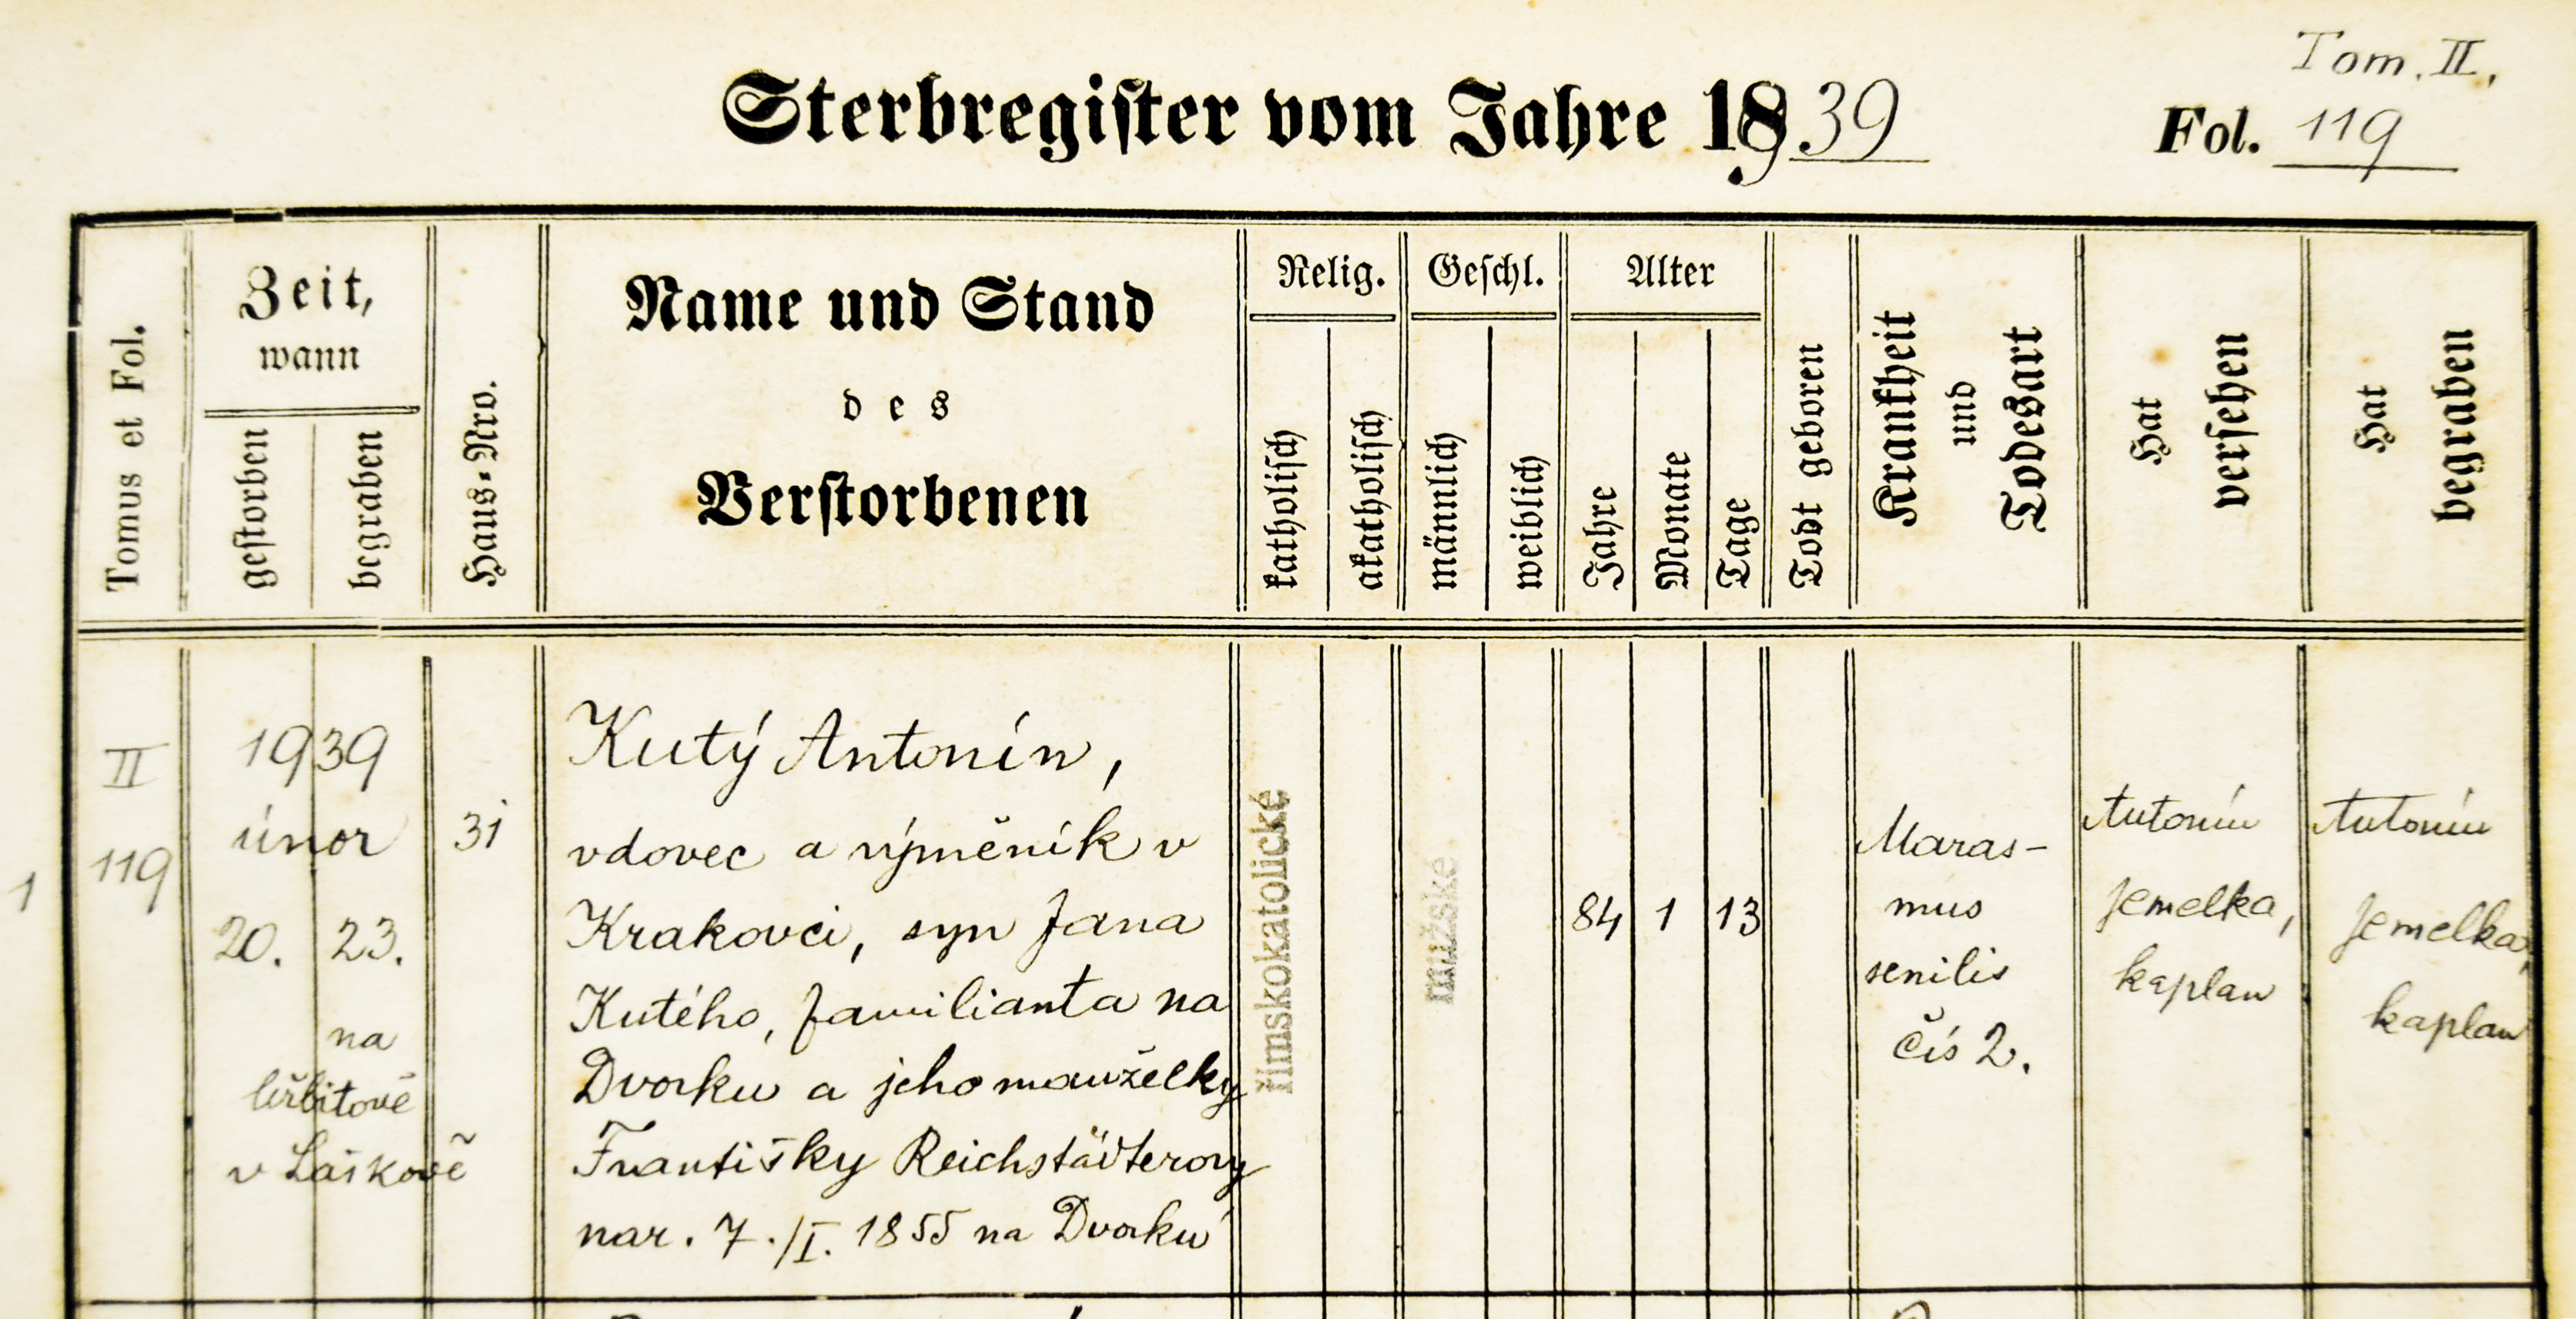 Tom. II.
Sterbregister vom Jahre 1939
Fol. 119
Tomus et Fol.
Zeit,
wann
gestorben
begraben
Haus-Nro.
Name und Stand
des
Verstorbenen
Relig.
katholisch
akatholisch
Geschl.
männlich
weiblich
Alter
Jahre
Monate
Tage
Todt geboren
Krankheit
und
Todesart
Hat
versehen
Hat
begraben
1
II
119
1939
únor
20. 23.
na
hřbitově
v Laškově
31
Kutý Antonín,
vdovec a výměník v
Krakovci, syn Jana
Kutého, familianta na
Dvorku a jeho manželky
Františky Reichstädterovy
nar. 7./I. 1855 na Dvorku
římskokatolické
mužské
84 1 13
Maras-
mus
senilis
čís 2.
Antonín
Jemelka,
kaplan
Antonín
Jemelka,
kaplan